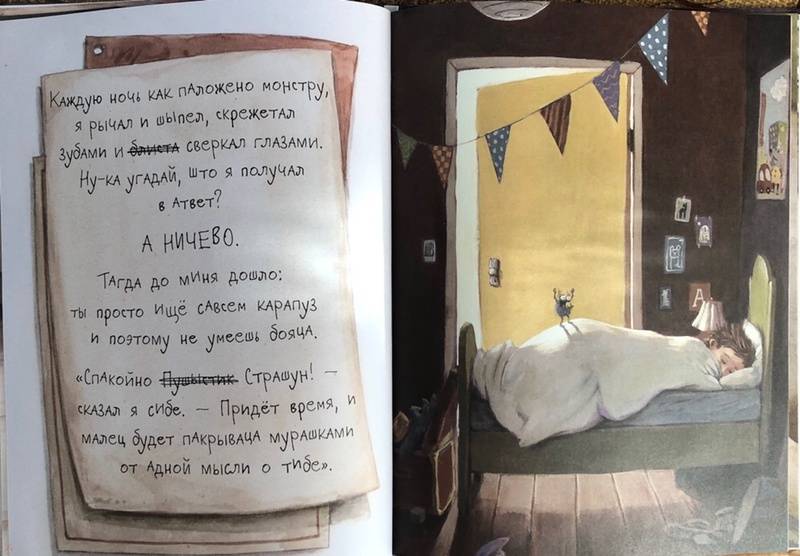 Каждую ночь как паложено монстру,
я рычал и шыпел, скрежетал
зубами и блиста сверкал глазами.
Ну-ка угадай, што я получал
в атвет?
А НИЧЕВО.
Тагда до миня дошло:
ты просто ищё савсем карапуз
и поэтому не умеешь бояца.
«Спакойно Пушыстик Страшун! —
сказал я сибе. — Придёт время, и
малец будет пакрываца мурашками
от адной мысли о тибе».
А